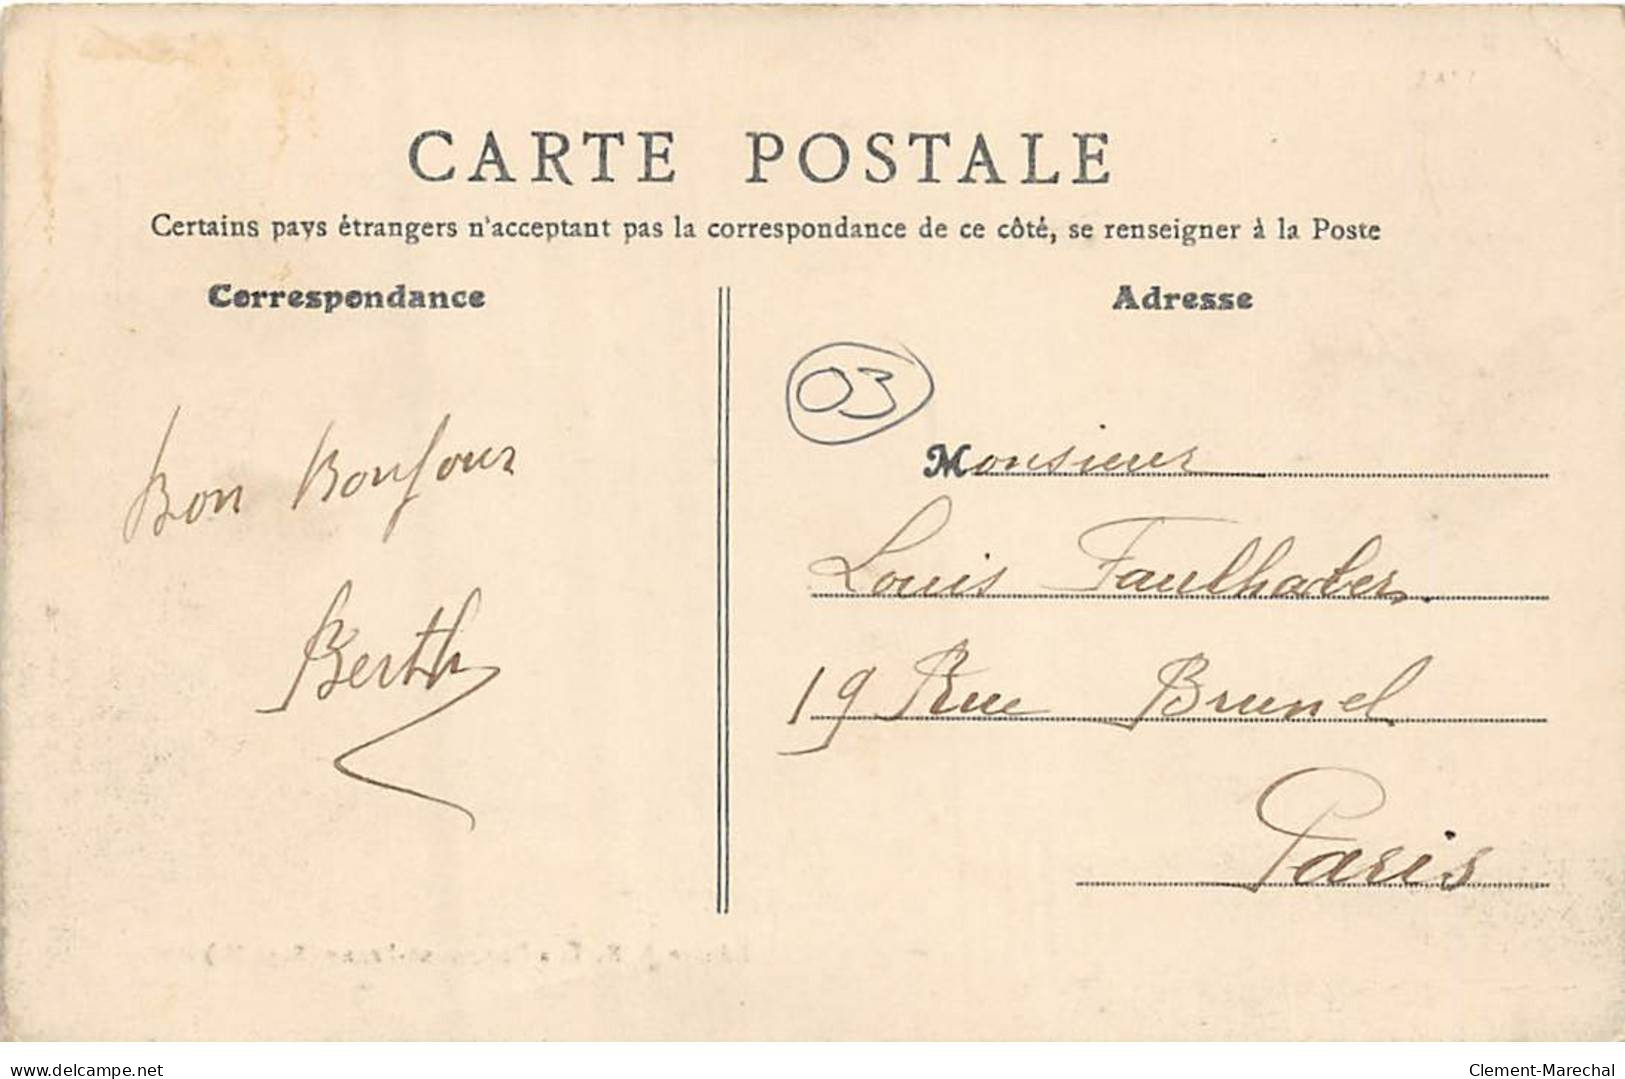 CARTE POSTALE
Certains pays étrangers n'acceptant pas la correspondance de ce côté, se renseigner à la Poste
Correspondance
Adresse
03
Bon Bonjour
Berth
Monsieur
Louis Faulhaber
19 Rue Brunel
Paris
www.delcampe.net
Clement-Marechal